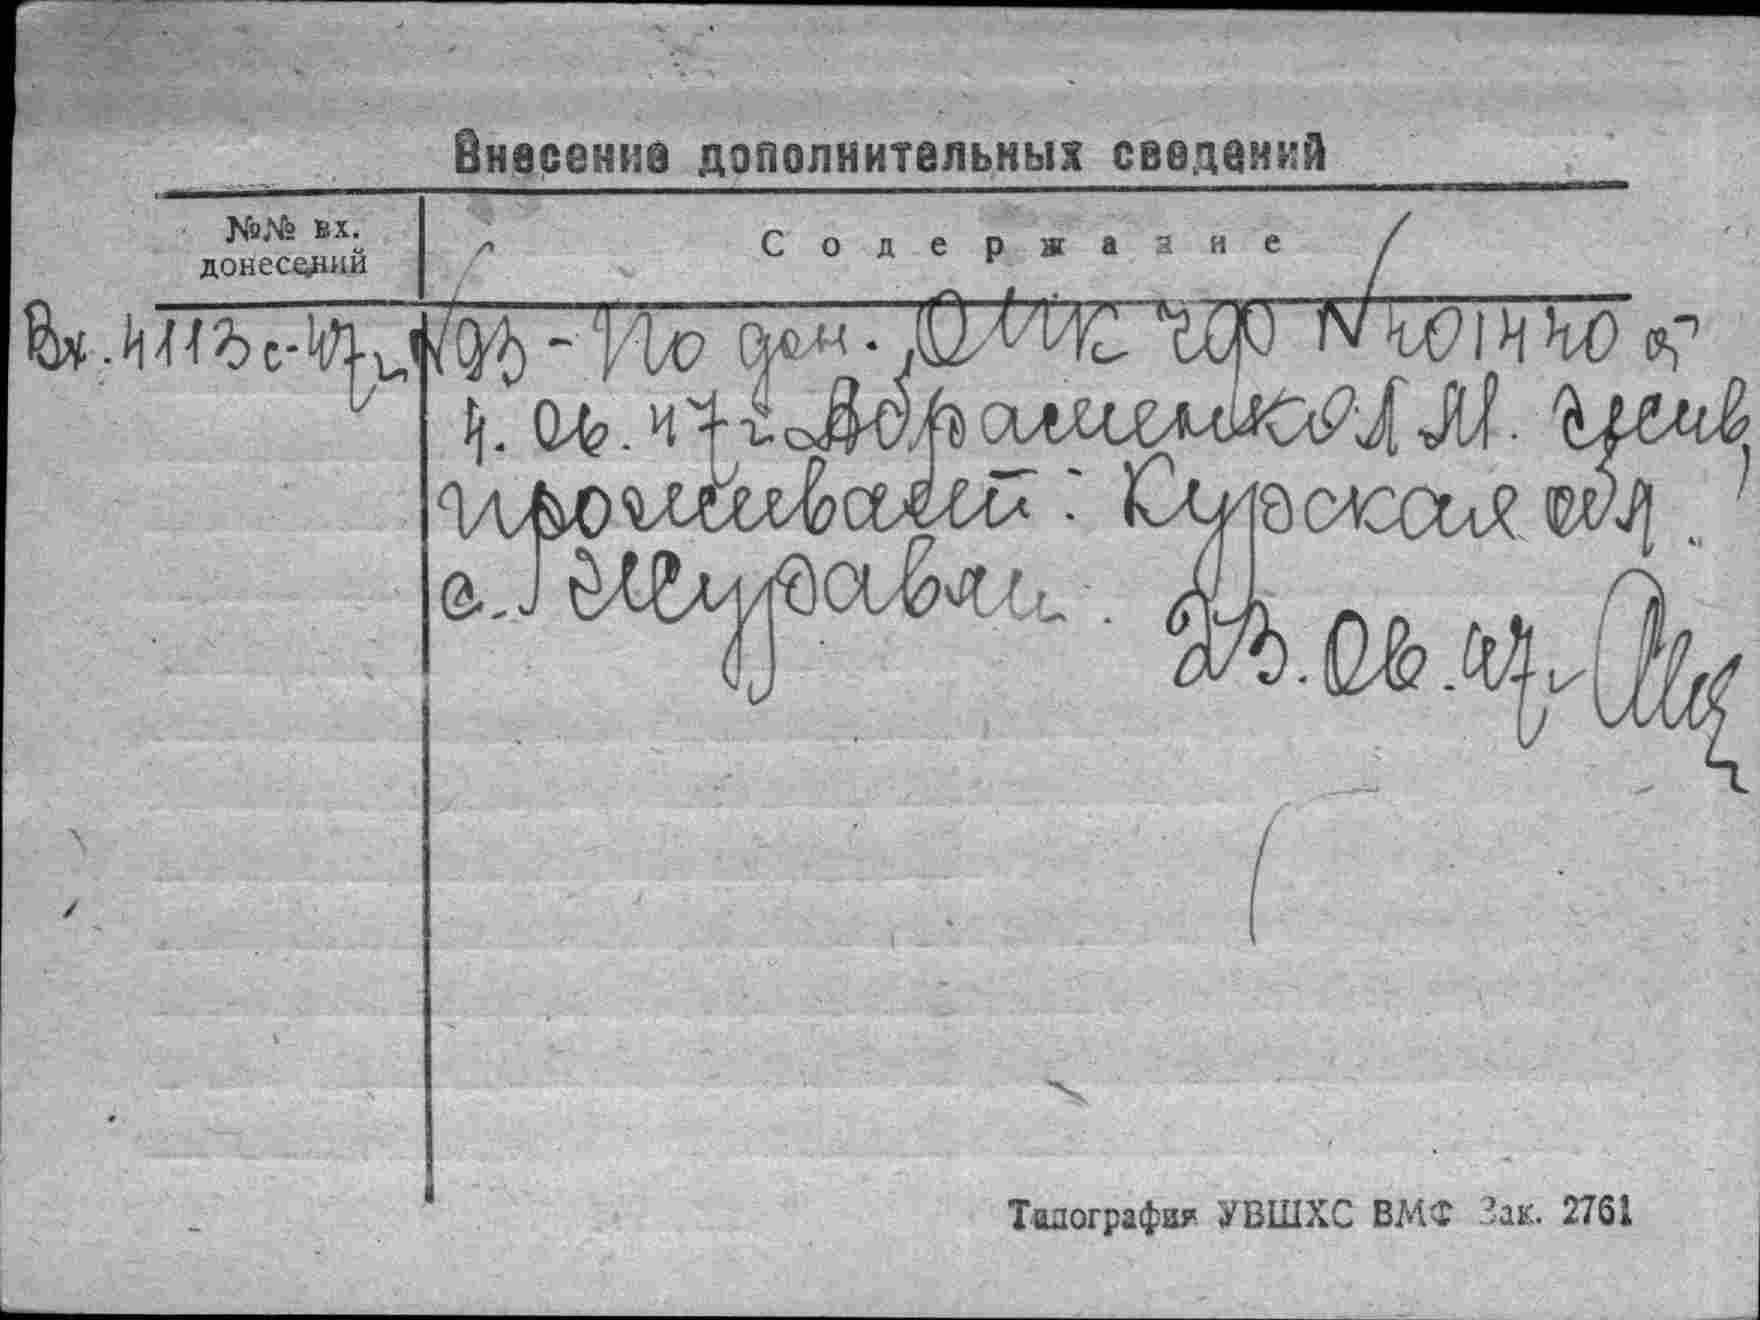 Внесение дополнительных сведений
№№ вх.
донесений
Содержание
Вх. 4113с-47г.
93 - По дон. ОМС ЧФ № 40140 от
4. 06. 47г. М. жив,
проживает: Курская обл.
с. Журавли. 23.06.47г.
Типография УВШХС ВМФ Зак. 2761